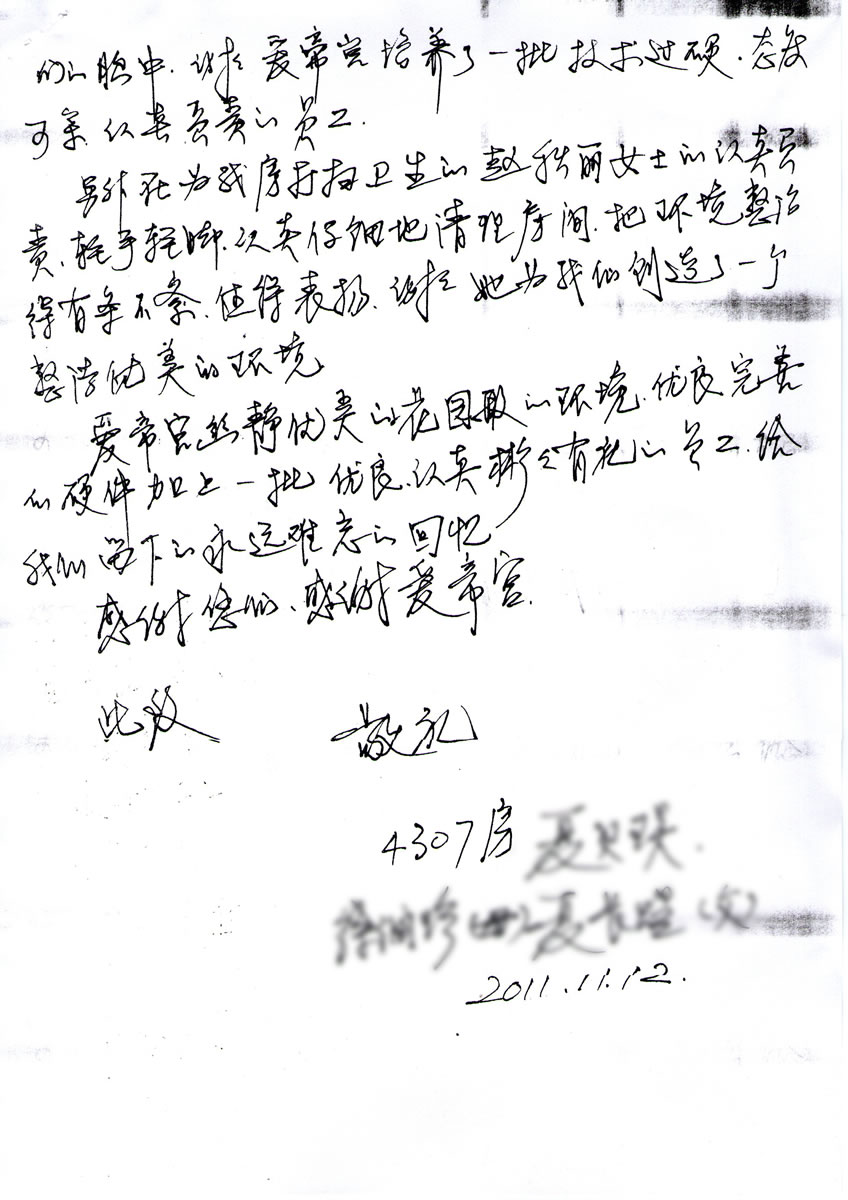 们心中. 谢谢爱帝宫培养了一批技术过硬. 态度
可亲. 认真负责的员工.
另外在为我房打扫卫生的赵 丽女士的认真负
责、轻手轻脚、认真仔细地清理房间. 把环境整治
得有条不紊. 值得表扬. 谢谢她为我们创造了一个
整洁优美的环境
爱帝宫幽静优美的花园般的环境. 优良完善
的硬件加上一批优良、认真彬彬有礼的员工. 给
我们留下的永远难忘的回忆
感谢您们、感谢爱帝宫.
此致 敬礼
4307房
2011.11.12.